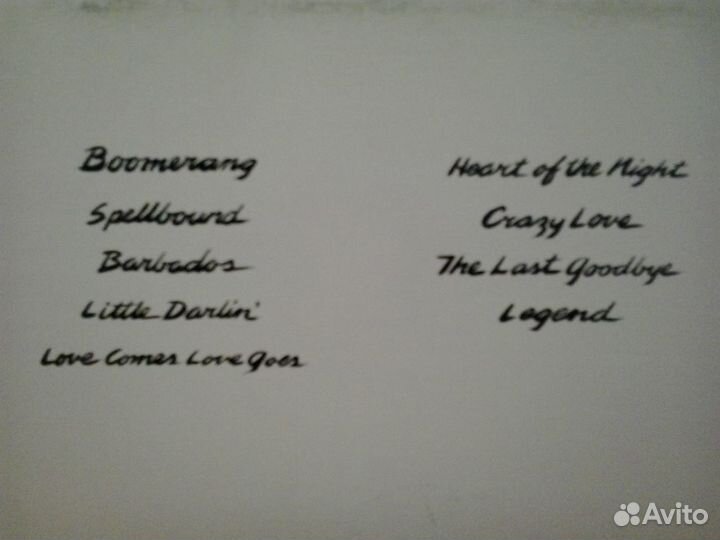 Boomerang
Spellbound
Barbados
Little Darlin'
Love Comes Love Goes
Heart of the Night
Crazy Love
The Last Goodbye
Legend
Avito